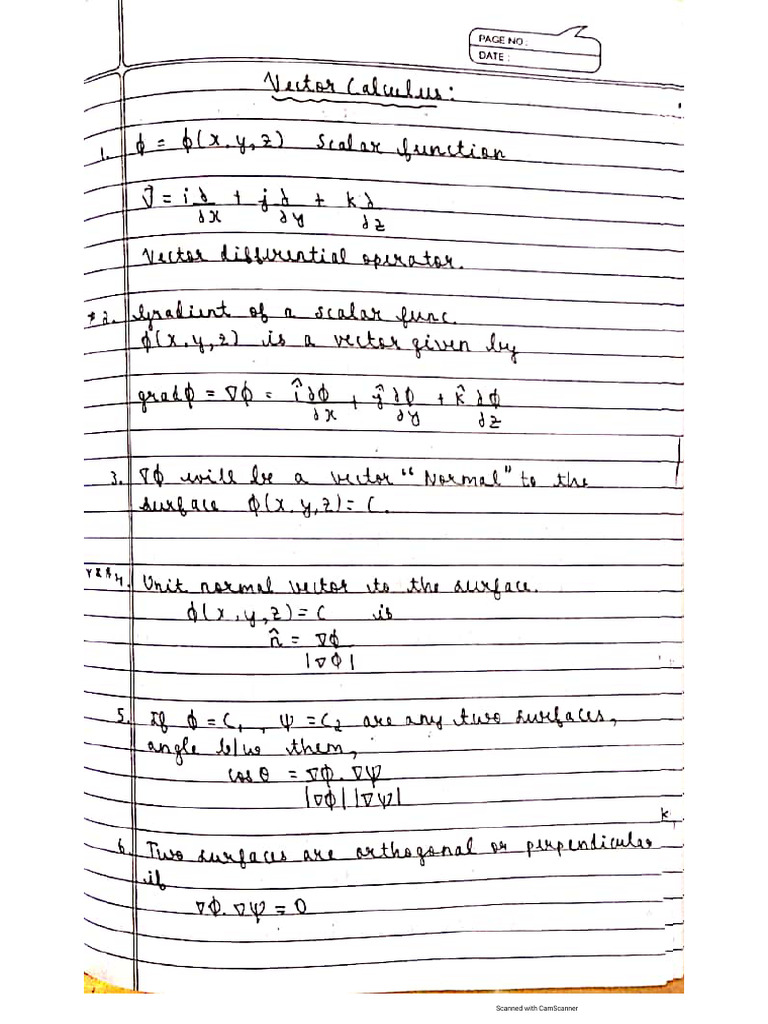 PAGE NO:
DATE:
Vector Calculus:
1. ϕ = ϕ(x, y, z) scalar function
∇ = i ∂/∂x + j ∂/∂y + k ∂/∂z
Vector differential operator.
* 2. Gradient of a scalar func.
ϕ(x, y, z) is a vector given by
gradϕ = ∇ϕ = î ∂ϕ/∂x + ĵ ∂ϕ/∂y + k̂ ∂ϕ/∂z
3. ∇ϕ will be a vector "Normal" to the
surface ϕ(x, y, z) = C.
4. Unit normal vector to the surface.
ϕ(x, y, z) = C is
n̂ = ∇ϕ/|∇ϕ|
5. If ϕ = C₁, ψ = C₂ are any two surfaces,
angle b/w them,
cosθ = ∇ϕ . ∇ψ/|∇ϕ| |∇ψ|
6. Two surfaces are orthogonal or perpendicular
if
∇ϕ. ∇ψ = 0
Scanned with CamScanner